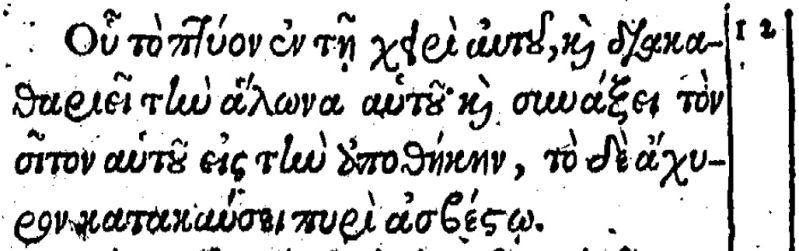 Οὗ τὸ πτύον ἐν τῇ χειρὶ αὐτοῦ, καὶ διακα- 12
θαριεῖ τὴν ἅλωνα αὑτοῦ· καὶ συνάξει τὸν
σῖτον αὑτοῦ εἰς τὴν ἀποθήκην, τὸ δὲ ἄχυ-
ρον κατακαύσει πυρὶ ἀσβέστῳ.